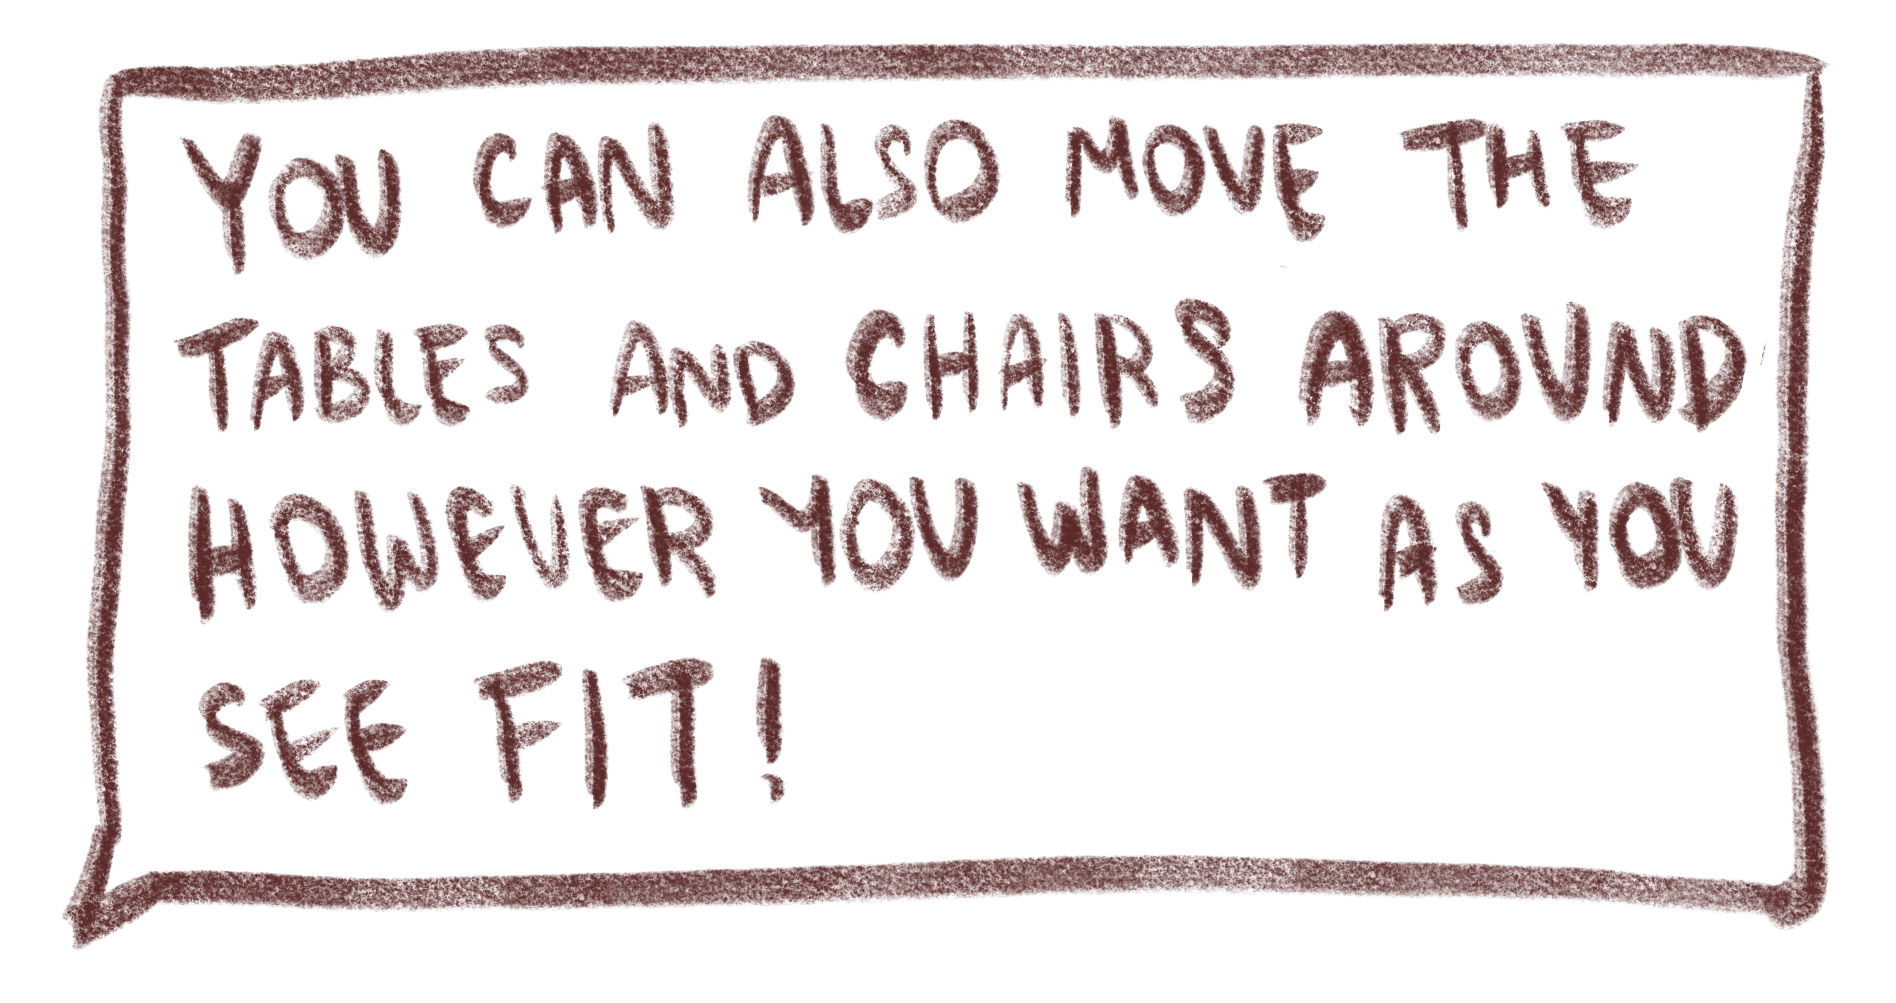 YOU CAN ALSO MOVE THE
TABLES AND CHAIRS AROUND
HOWEVER YOU WANT AS YOU
SEE FIT!